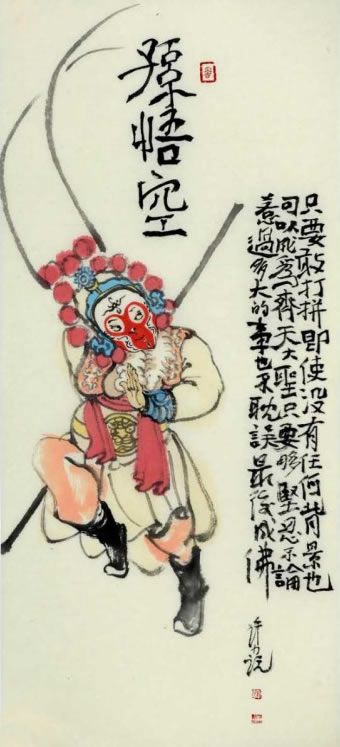 孫悟空
只要敢打拼即使没有任何背景也
可以成爲齊天大聖只要够堅忍不論
惹過多大的事也不耽誤最後成佛